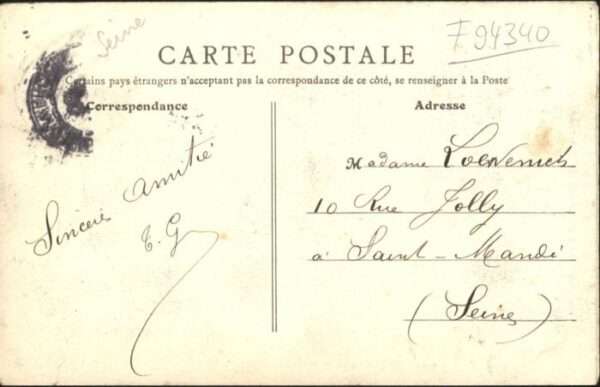 Seine
F 94340
CARTE POSTALE
Certains pays étrangers n'acceptant pas la correspondance de ce côté, se renseigner à la Poste
Correspondance
Adresse
Sincère amitié
T. G
Madame
10 Rue Jolly
à Saint-Mandé
(Seine)